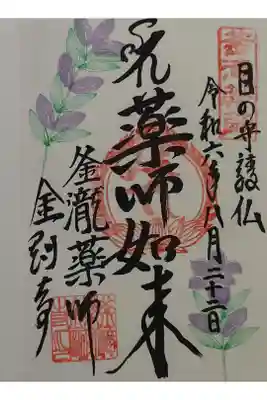 目の守護仏
令和六年八月二十二日
薬師如来
釜瀧薬師
金剛寺